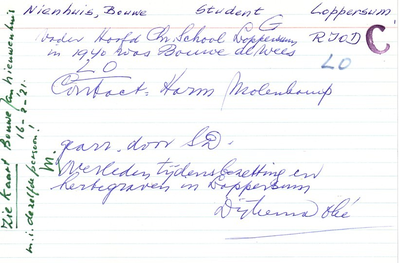 Nienhuis, Bouwe Student Loppersum
G
Vader Hoofd Chr. School Loppersum RIOD C
in 1940 was Bouwe al wees
LO LO
Contact: Harm Molenkamp
M.
gearr. door SD.
Overleden tijdens bezetting en
herbegraven in Loppersum
Dijkema
Zie kaart Bouwe Jan Nieuwenhuis
16-2-'21.
m.i. dezelfde persoon!